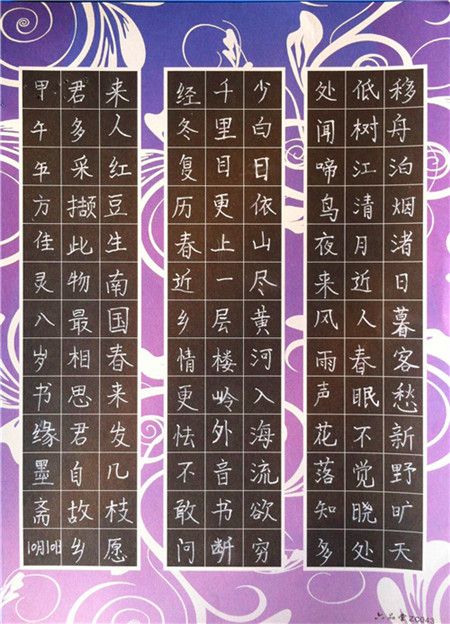 移舟泊烟渚日暮客愁新野旷天
低树江清月近人春眠不觉晓处
处闻啼鸟夜来风雨声花落知多
少白日依山尽黄河入海流欲穷
千里目更上一层楼岭外音书断
经冬复历春近乡情更怯不敢问
来人红豆生南国春来发几枝愿
君多采撷此物最相思君自故乡
甲午年方佳灵八岁书缘墨斋10月10日
六品堂 ZC043